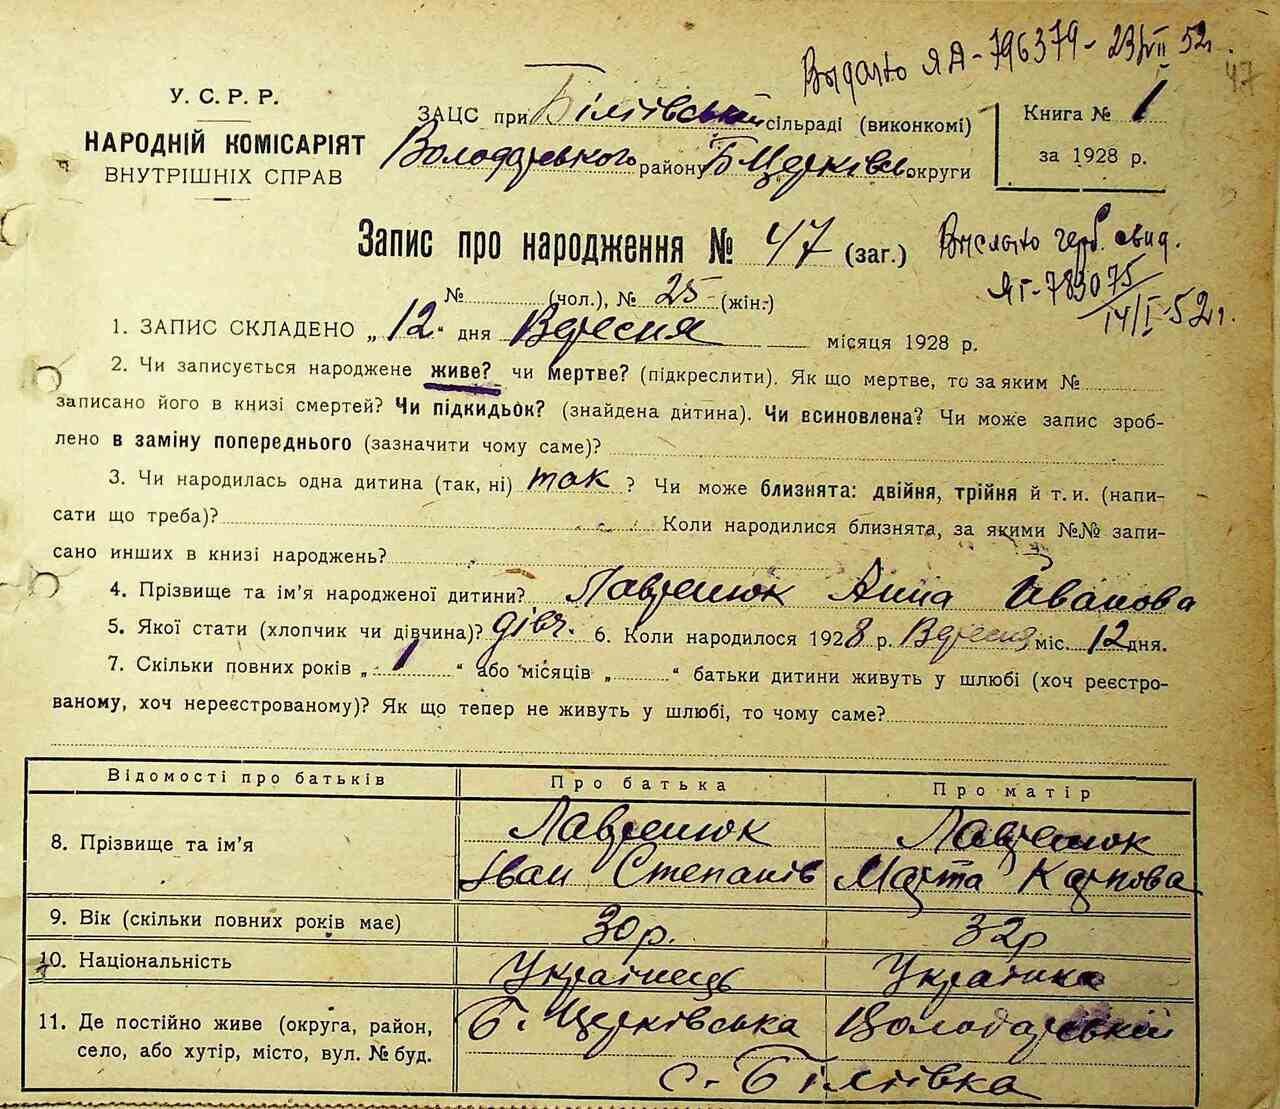 Видано ЯА-796379-23/VII 52г.
47
У. С. Р. Р.
НАРОДНІЙ КОМІСАРІЯТ
ВНУТРІШНІХ СПРАВ
ЗАЦС при Біліївській сільраді (виконкомі)
Володарського району Б Церківсь округи
Книга № 1
за 1928 р.
Запис про народження № 47 (заг.)
Выслано герб. свид.
ЯГ-783075
14/I-52г.
№ (чол.), № 25 (жін.)
1. ЗАПИС СКЛАДЕНО „12“ дня Вересня місяця 1928 р.
2. Чи записується народжене живе? чи мертве? (підкреслити). Як що мертве, то за яким №
записано його в книзі смертей? Чи підкидьок? (знайдена дитина). Чи всиновлена? Чи може запис зроб-
лено в заміну попереднього (зазначити чому саме)?
3. Чи народилась одна дитина (так, ні) так ? Чи може близнята: двійня, трійня й т. и. (напи-
сати що треба)? Коли народилися близнята, за якими №№ запи-
сано инших в книзі народжень?
4. Прізвище та ім’я народженої дитини? Лавренюк Анна Іванова
5. Якої стати (хлопчик чи дівчина)? дівч. 6. Коли народилося 1928 р. Вересня міс. 12 дня.
7. Скільки повних років „1“ або місяців „ “ батьки дитини живуть у шлюбі (хоч реєстро-
ваному, хоч нереєстрованому)? Як що тепер не живуть у шлюбі, то чому саме?
Відомості про батьків Про батька Про матір
8. Прізвище та ім’я
Лавренюк Лавренюк
Іван Степанів Марта Карпова
9. Вік (скільки повних років має) 30р. 32р
10. Національність Українець Українка
11. Де постійно живе (округа, район,
село, або хутір, місто, вул. № буд.
Б. Церківська Володарській
с. Біліївка